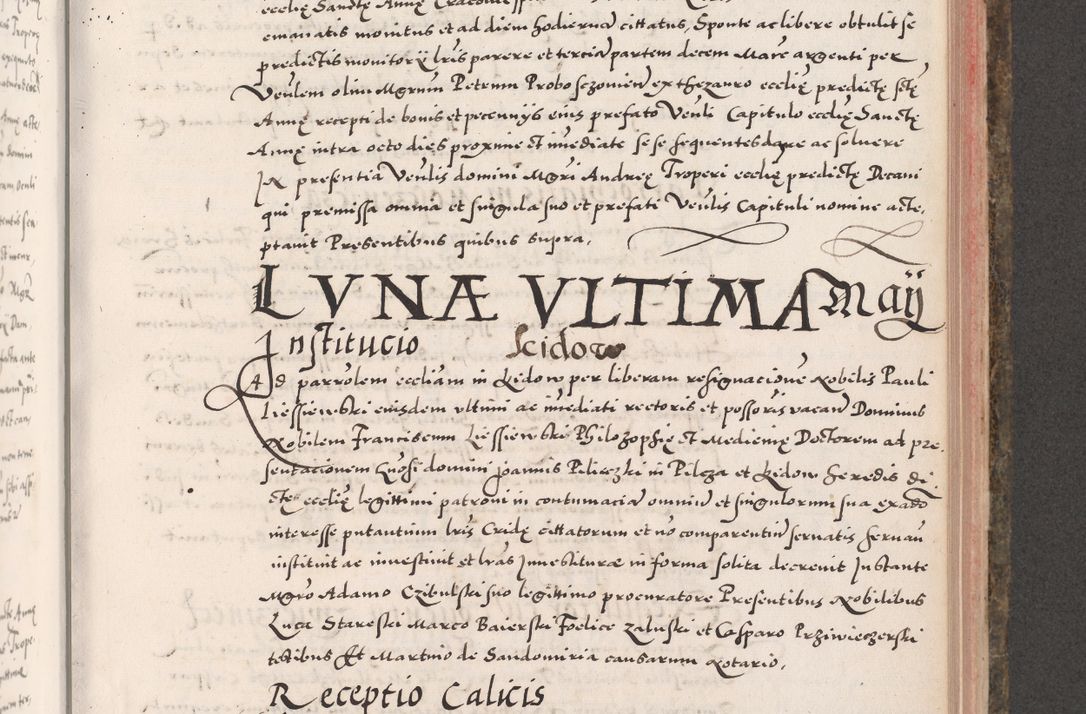 ecclię Sanctę Annę
emanatis monitus et ad diem hodiernā cittatus, Sponte ac libere obtulit se
predictis monitorÿ lris parere et terciā partem decem Marc argenti per
Venlem olim Mgrum Petrum Proboszczowicz ex thezauro ecclię predictę sctę
Annę recepti de bonis et pecunÿs eius prefato Venli Capitulo ecclię Sanctę
Annę intra octo dies proxime et imediate sese sequentes dare ac soluere
IN presentia Venlis domini Mgri Andreę Troperi ecclię predictę Decani
qui premissa omnia et singula suo et prefati Venlis Capituli nomine acte,
ptauit Presentibus quibus supra,
LVNÆ VLTIMA Maÿ
Institucio
Ad parrolem eccliam in Kidow per liberam resignacione Nobilis Pauli
Liessiewski eiusdem vltimi ac imediati rectoris et possoris vacan Dominus
Nobilem Franciscum Liessiewski Philozophię et Medicinę Doctorem ad pre,
sentacionem Gnosi domini Joannis Pilieczki in Pilcza et Kidow heredis di,
ctę ecclię legittimi patroni in contumaciā omniū et singulorum sua exadō
interesse putantium lris Cridę cittatorum et nō comparentiū seruatis seruan
instituit ac inuestiuit et lras Inuestituræ in forma solita decreuit Instante
Mgro Adamo Czibulski suo legittimo procuratore Presentibus Nobilibus
Luca Stareski Marco Baierski Foelice Zaluski et Casparo Prziwieczerski
testibus Et Martino de Sandomiria causarum Notario,
Receptio Calicis